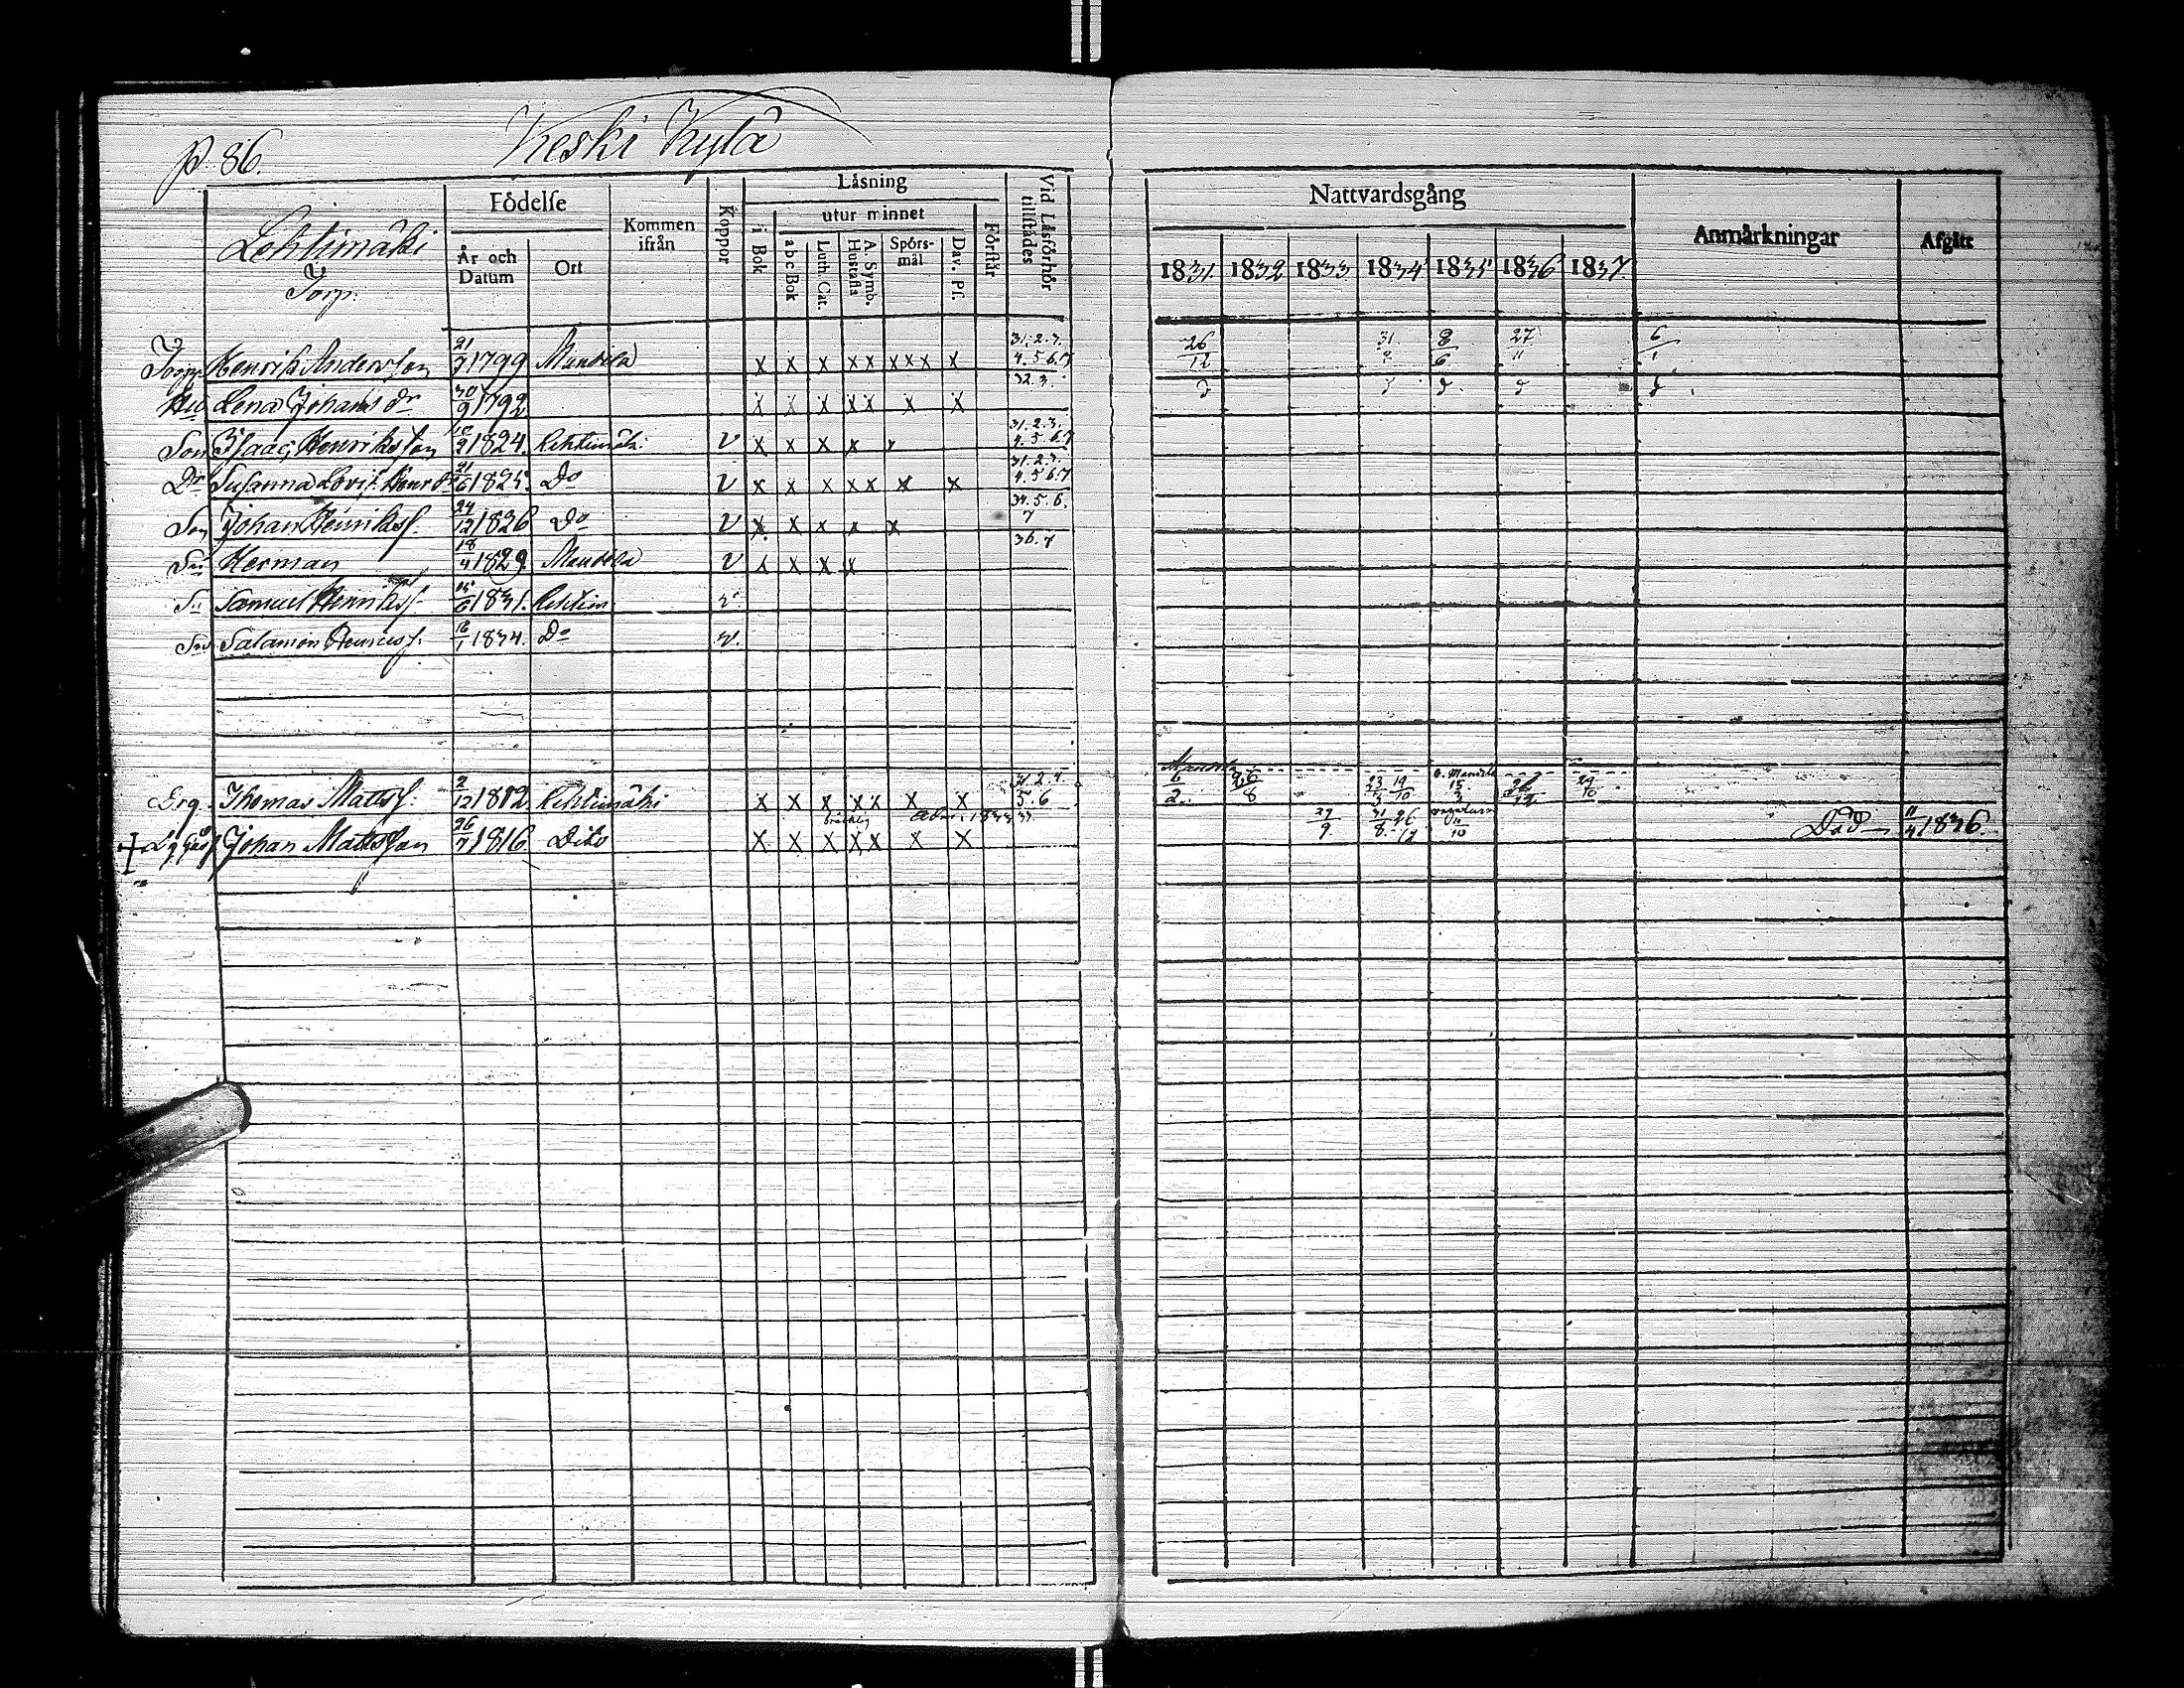 p. 86. Keski Kylä
Lehtimäki
Torp.
Födelse
År och Datum
Ort
Kommen ifrån
Koppor
Läsning
i Bok
utur minnet
a b c Bok
Luth. Cat.
A. Symb. Hustafla
Spörs-mål
Dav. Ps.
Förstår
Vid Läsförhör tillstädes
Nattvardsgång
1831. 1832 1833 1834 1835 1836 1837
Anmärkningar
Afgått
Torp. Henrik Andersson 21/7 1799 x x x xx xxx x 31.2.3. 4.5.6.7 26/12 8/6 27/11 6/1
Hu Lena Johans dr 30/9 1792 x x x xx x x 32.3.
Son Isaac Henriksson 1824. Lehtimäki v x x x x x 31.2.3. 4.5.6.7
Dr Susanna Lovis. Henr dr 21/6 1825. Do v x x x xx x x 31.2.3. 4.5.6.7
Son Johan Henrikss. 24/12 1826 Do v x x x x x 34.5.6. 7
Son Herman 18/4 1829 v x x x x 36.7
Sn Samuel Henrikss. 15/6 1831. Lehtim v
Son Salamon Henricss. 16/1 1834. Do v.
Thomas Matts. 2/12 1812 Lehtimäki x x x xx x x 31.2.4. 5.6 6/2. 26/8 23/3 19/10 15/3 29/10
Johan Mattsson 26/7 1816 Dito x x x xx x x 31/8 26/12 11/10 Död 11/4 1836.